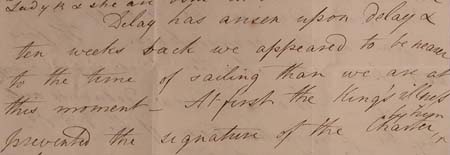 Lady R & she are
Delay has arisen upon delay &
ten weeks back we appeared to be nearer
to the time of sailing than we are at
this moment – At first the King's illness
prevented the signature of the Charter,